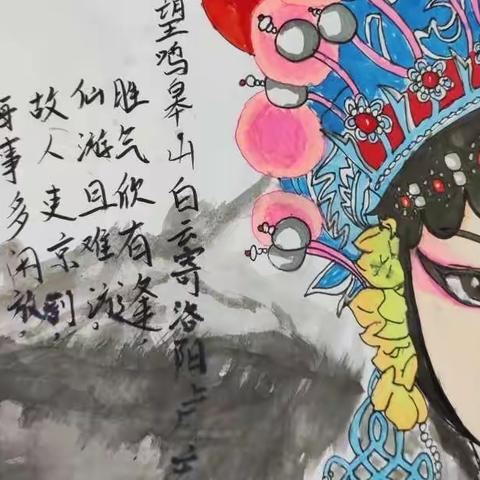 望鸣皋山白云寄洛阳卢
胜气欣有逢
仙游且难
故人吏京剧
每事多闲放